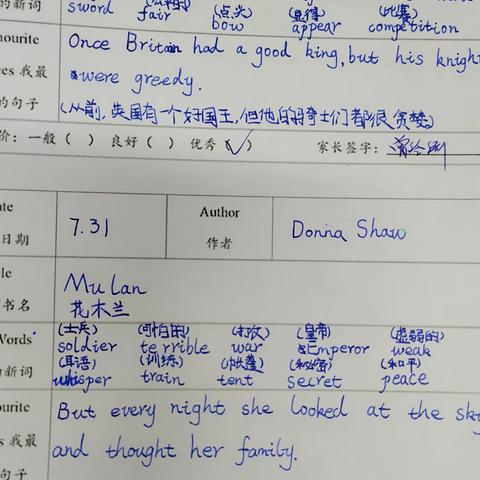 的新词
sword fair (点头) (显得) (比赛)
bow appear competition
ourite Once Britain had a good king, but his knigh
es 我最 were greedy.
的句子 (从前,英国有一个好国王,但他的骑士们都很贪婪)
价:一般( ) 良好( ) 优秀(✓) 家长签字:
ate
日期 7.31 Author
作者 Donna Shaw
le
书名 Mulan
花木兰
Words (士兵) (可怕的) (打仗) (皇帝) (虚弱的)
soldier terrible war Emperor weak
新词 (耳语) (训练) (帐篷) (秘密) (和平)
whisper train tent secret peace
ourite But every night she looked at the sky
s 我最 and thought her family.
句子